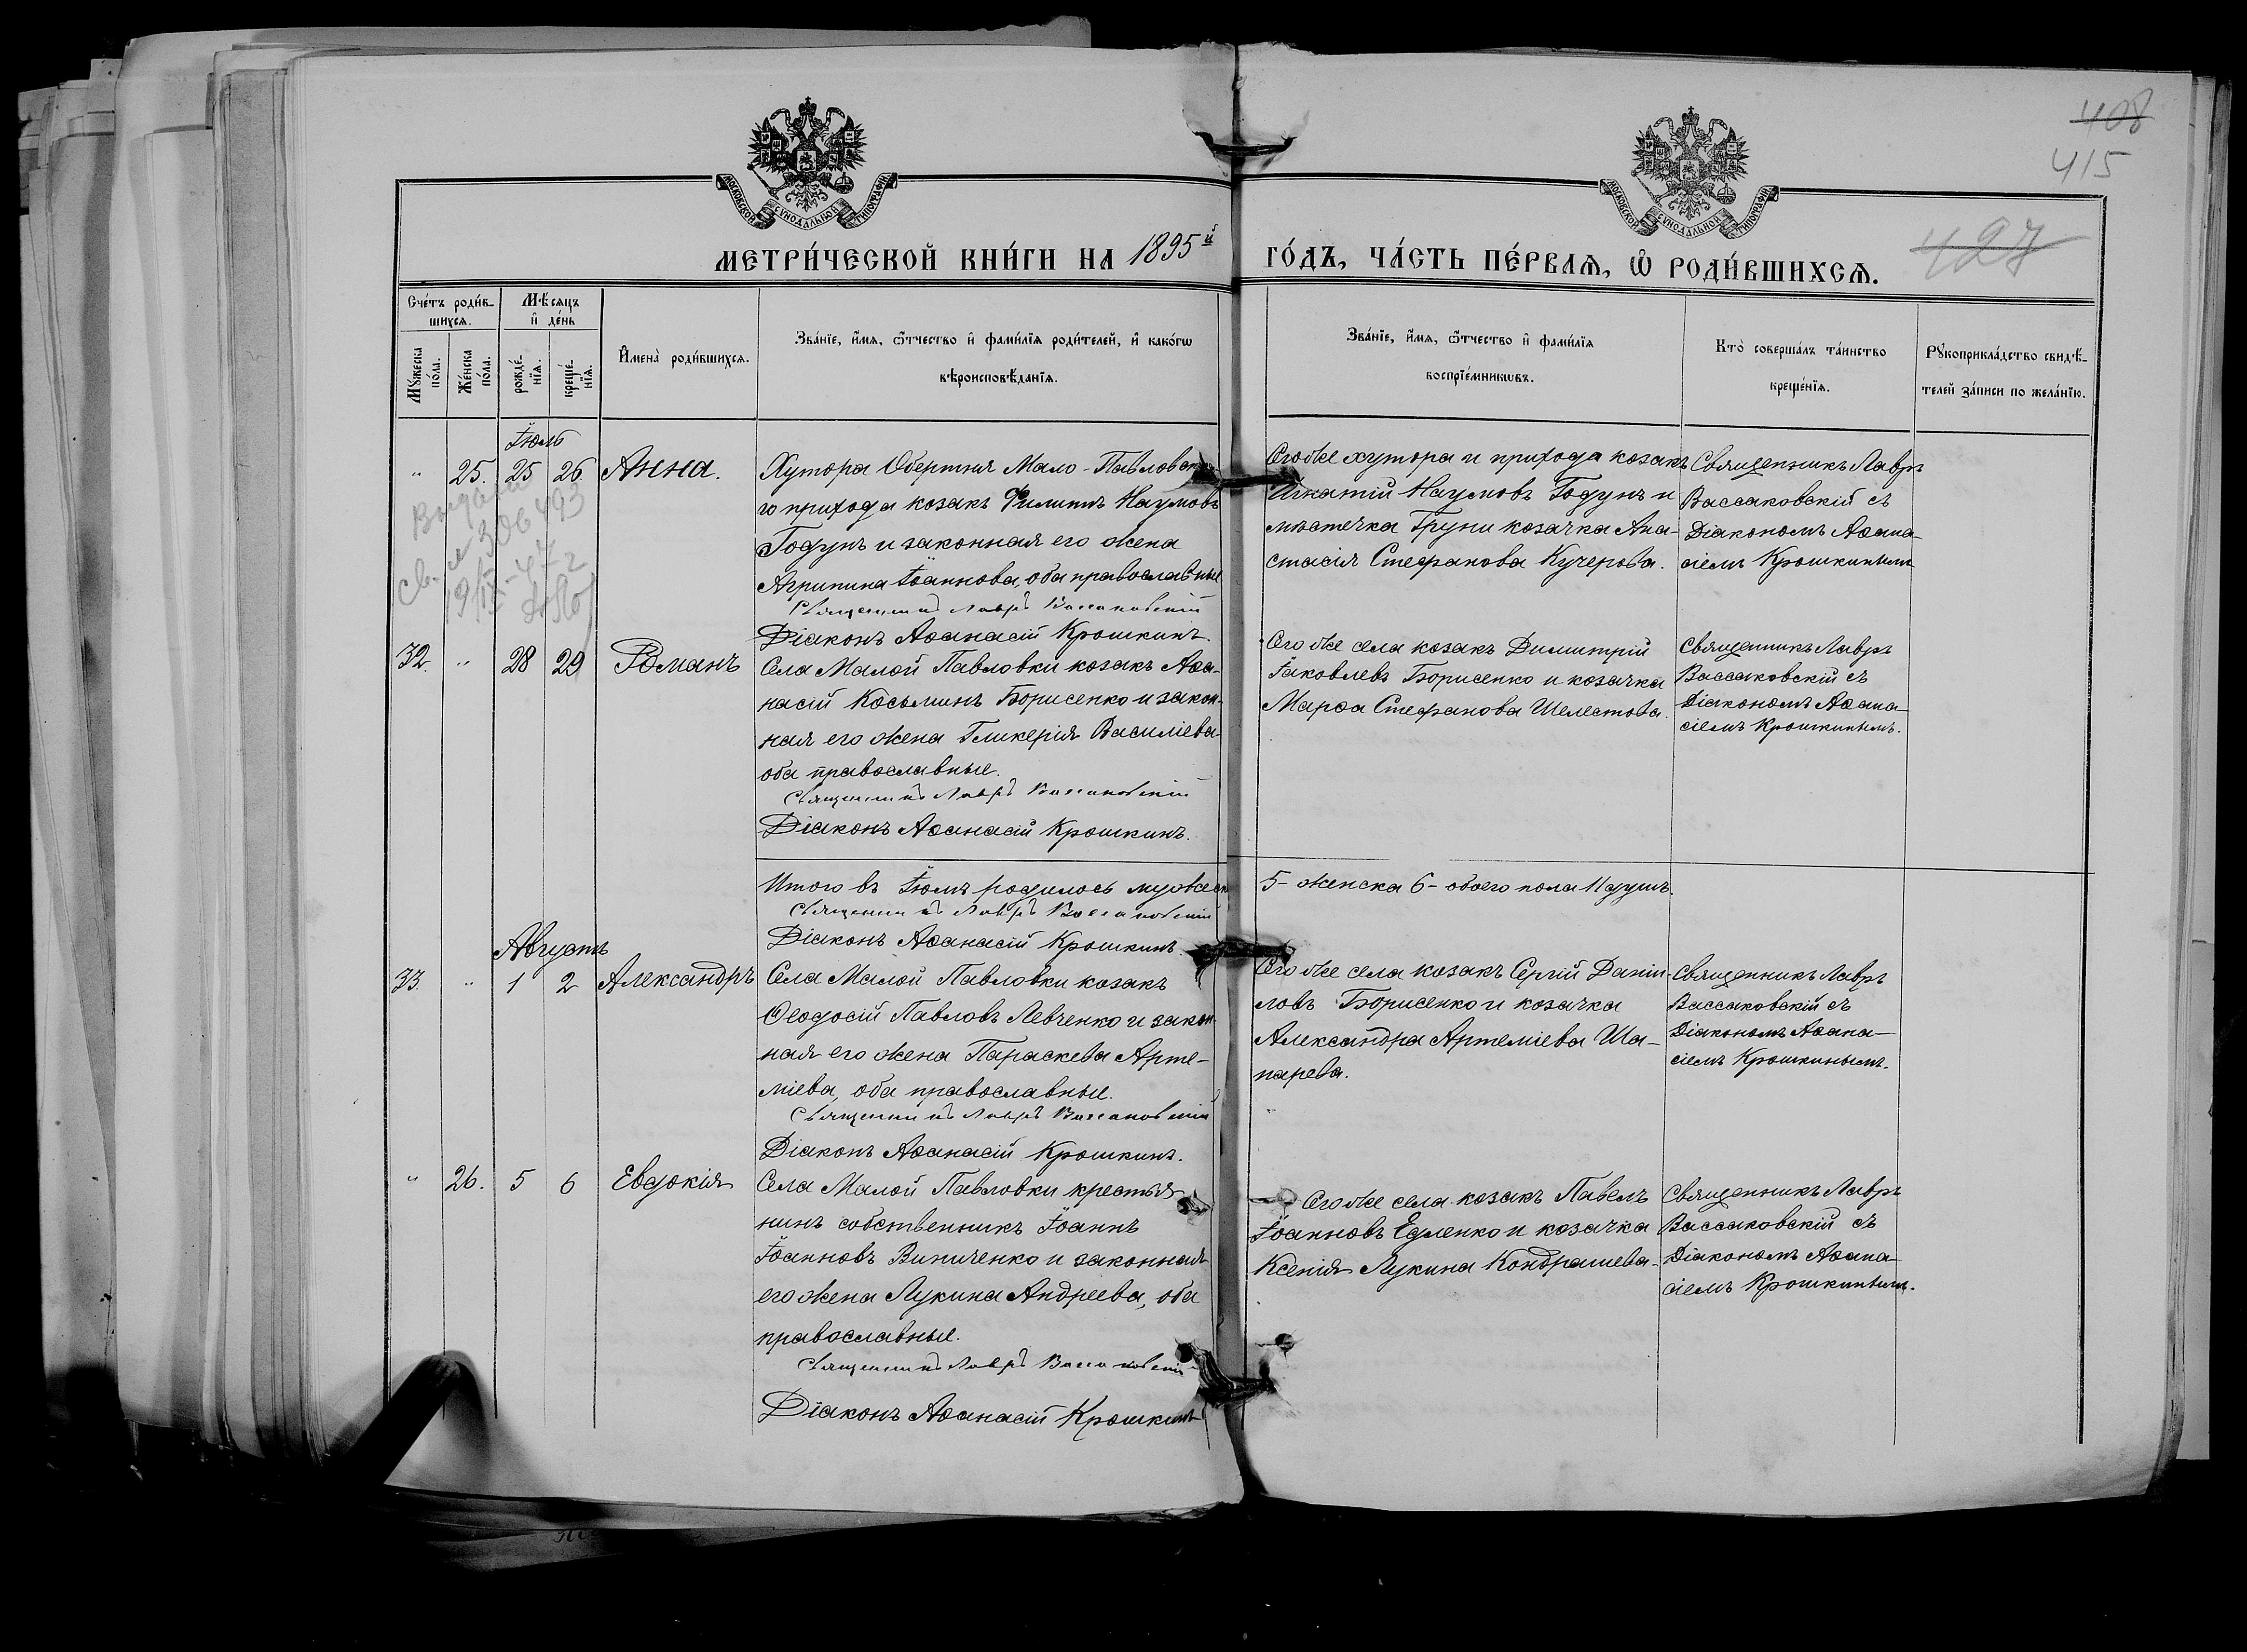 408
415
427
МОСКОВСКОЙ СУНОДАЛЬНОЙ ТИПОГРАФІИ
МОСКОВСКОЙ СУНОДАЛЬНОЙ ТИПОГРАФІИ
МЕТРИ́ЧЕСКОЙ КНИ́ГИ НА 1895й ГО́ДЪ, ЧА́СТЬ ПЕ́РВАѦ, Ѡ҆ РОДИ́ВШИХСѦ.
Сче́тъ роди́в-
шихсѧ.
Мꙋ́жеска по́ла.
Же́нска по́ла.
Мѣ́сѧцъ
и҆ де́нь
рожде́-
нїѧ.
креще́-
нїѧ.
И҆мена̀ роди́вшихсѧ.
Зва́нїе, и҆́мѧ, ѻ҆́тчество и҆ фами́лїѧ роди́телей, и҆ како́гѡ
вѣроисповѣ́данїѧ.
Зва́нїе, и҆́мѧ, ѻ҆́тчество и҆ фами́лїѧ
воспрїе́мникѡвъ.
Кто̀ соверша́лъ та́инство
креще́нїѧ.
Рꙋкоприкла́дство свидѣ́-
телей за́писи по жела́нїю.
Іюль
" 25. 25 26 Анна.
Хутора Обертня Мало-Павловска-
го прихода козакъ Филиппъ Наумовъ
Годунъ и законная его жена
Агрипина Іоаннова, оба православные
Священникъ Лавръ Вассаковскій
Діаконъ Аѳанасій Крошкинъ.
Того же хутора и прихода козакъ
Игнатій Наумовъ Годунъ и
мѣстечка Груни козачка Ана-
стасія Стефанова Кучерова.
Священникъ Лавръ
Вассаковскій съ
Діакономъ Аѳана-
сіемъ Крошкинымъ
Св.
32. " 28 29 Романъ
Села Малой Павловки козакъ Аѳа-
насій Косьминъ Борисенко и закон-
ная его жена Гликерія Василіева
оба православные.
Священникъ Лавръ Вассаковскій
Діаконъ Аѳанасій Крошкинъ.
Того же села козакъ Димитрій
Іаковлевъ Борисенко и козачка
Марѳа Стефанова Шелестова.
Священникъ Лавръ
Вассаковскій съ
Діакономъ Аѳана-
сіемъ Крошкинымъ.
Итого въ Іюлѣ родилось мужеска 5 - женска 6 - обоего пола 11 душъ.
Священникъ Лавръ Вассаковскій
Діаконъ Аѳанасій Крошкинъ.
Августъ
33. " 1 2 Александръ
Села Малой Павловки козакъ
Ѳеодосій Павловъ Левченко и закон-
ная его жена Параскева Арте-
міева, оба православные.
Священникъ Лавръ Вассаковскій
Діаконъ Аѳанасій Крошкинъ.
Того же села козакъ Сергій Даніи-
ловъ Борисенко и козачка
Александра Артеміева Ша-
парева.
Священникъ Лавръ
Вассаковскій съ
Діакономъ Аѳана-
сіемъ Крошкинымъ.
" 26. 5 6 Евдокія
Села Малой Павловки крестья-
нинъ собственникъ Іоаннъ
Іоанновъ Винниченко и законная
его жена Лукина Андреева, оба
православные.
Священникъ Лавръ Вассаковскій
Діаконъ Аѳанасій Крошкинъ
Того же села козакъ Павелъ
Іоанновъ Едленко и козачка
Ксенія Лукина Кондрашева.
Священникъ Лавръ
Вассаковскій съ
Діакономъ Аѳана-
сіемъ Крошкинымъ.